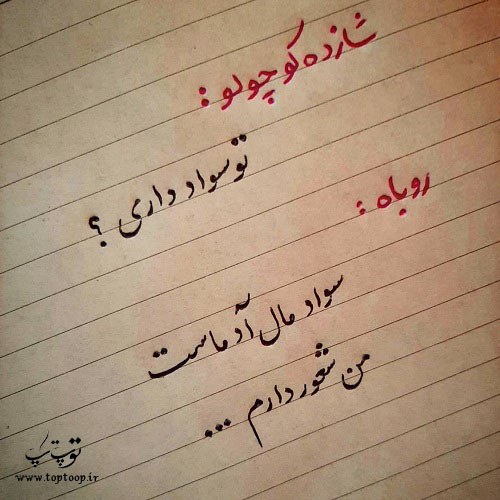 شازده کوچولو :
تو سواد داری ؟
روباه :
سواد مال آدماست
من شعور دارم ...
توپ تاپ
www.toptoop.ir